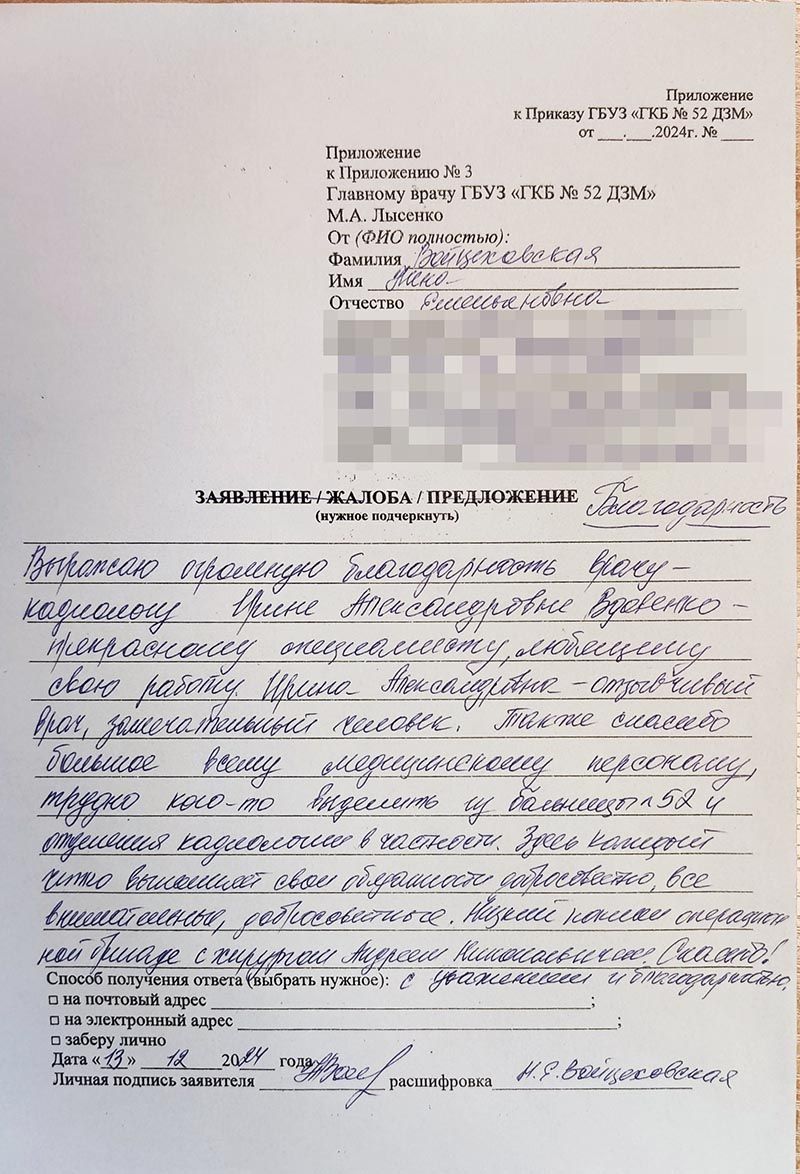 Приложение
к Приказу ГБУЗ «ГКБ № 52 ДЗМ»
от ___.___.2024г. № ____
Приложение
к Приложению № 3
Главному врачу ГБУЗ «ГКБ № 52 ДЗМ»
М.А. Лысенко
От (ФИО полностью):
Фамилия Войцеховская
Имя Нина
Отчество Емельяновна
ЗАЯВЛЕНИЕ / ЖАЛОБА / ПРЕДЛОЖЕНИЕ Благодарность
(нужное подчеркнуть)
Выражаю огромную благодарность врачу-
кадиологу Ирине Александровне Вдовенко -
прекрасному специалисту, любящему
свою работу. Ирина Александровна - отзывчивый
врач, замечательный человек. Также спасибо
большое всему медицинскому персоналу,
трудно кого-то выделить из больницы №52 и
отделения кадиологии в частности. Здесь каждый
четко выполняет свои обязанности добросовестно, все
внимательные, добросовестные. Низкий поклон операцион
ной бригаде с хирургом Андреем Николаевичем. Спасибо!
Способ получения ответа (выбрать нужное): С уважением и благодарностью.
□ на почтовый адрес ;
□ на электронный адрес ;
□ заберу лично
Дата «13» 12 2024 года
Личная подпись заявителя расшифровка Н.Е. Войцеховская